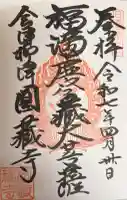 奉拝 令和七年四月卅日
福満虚空蔵大菩薩
会津柳津 圓蔵寺